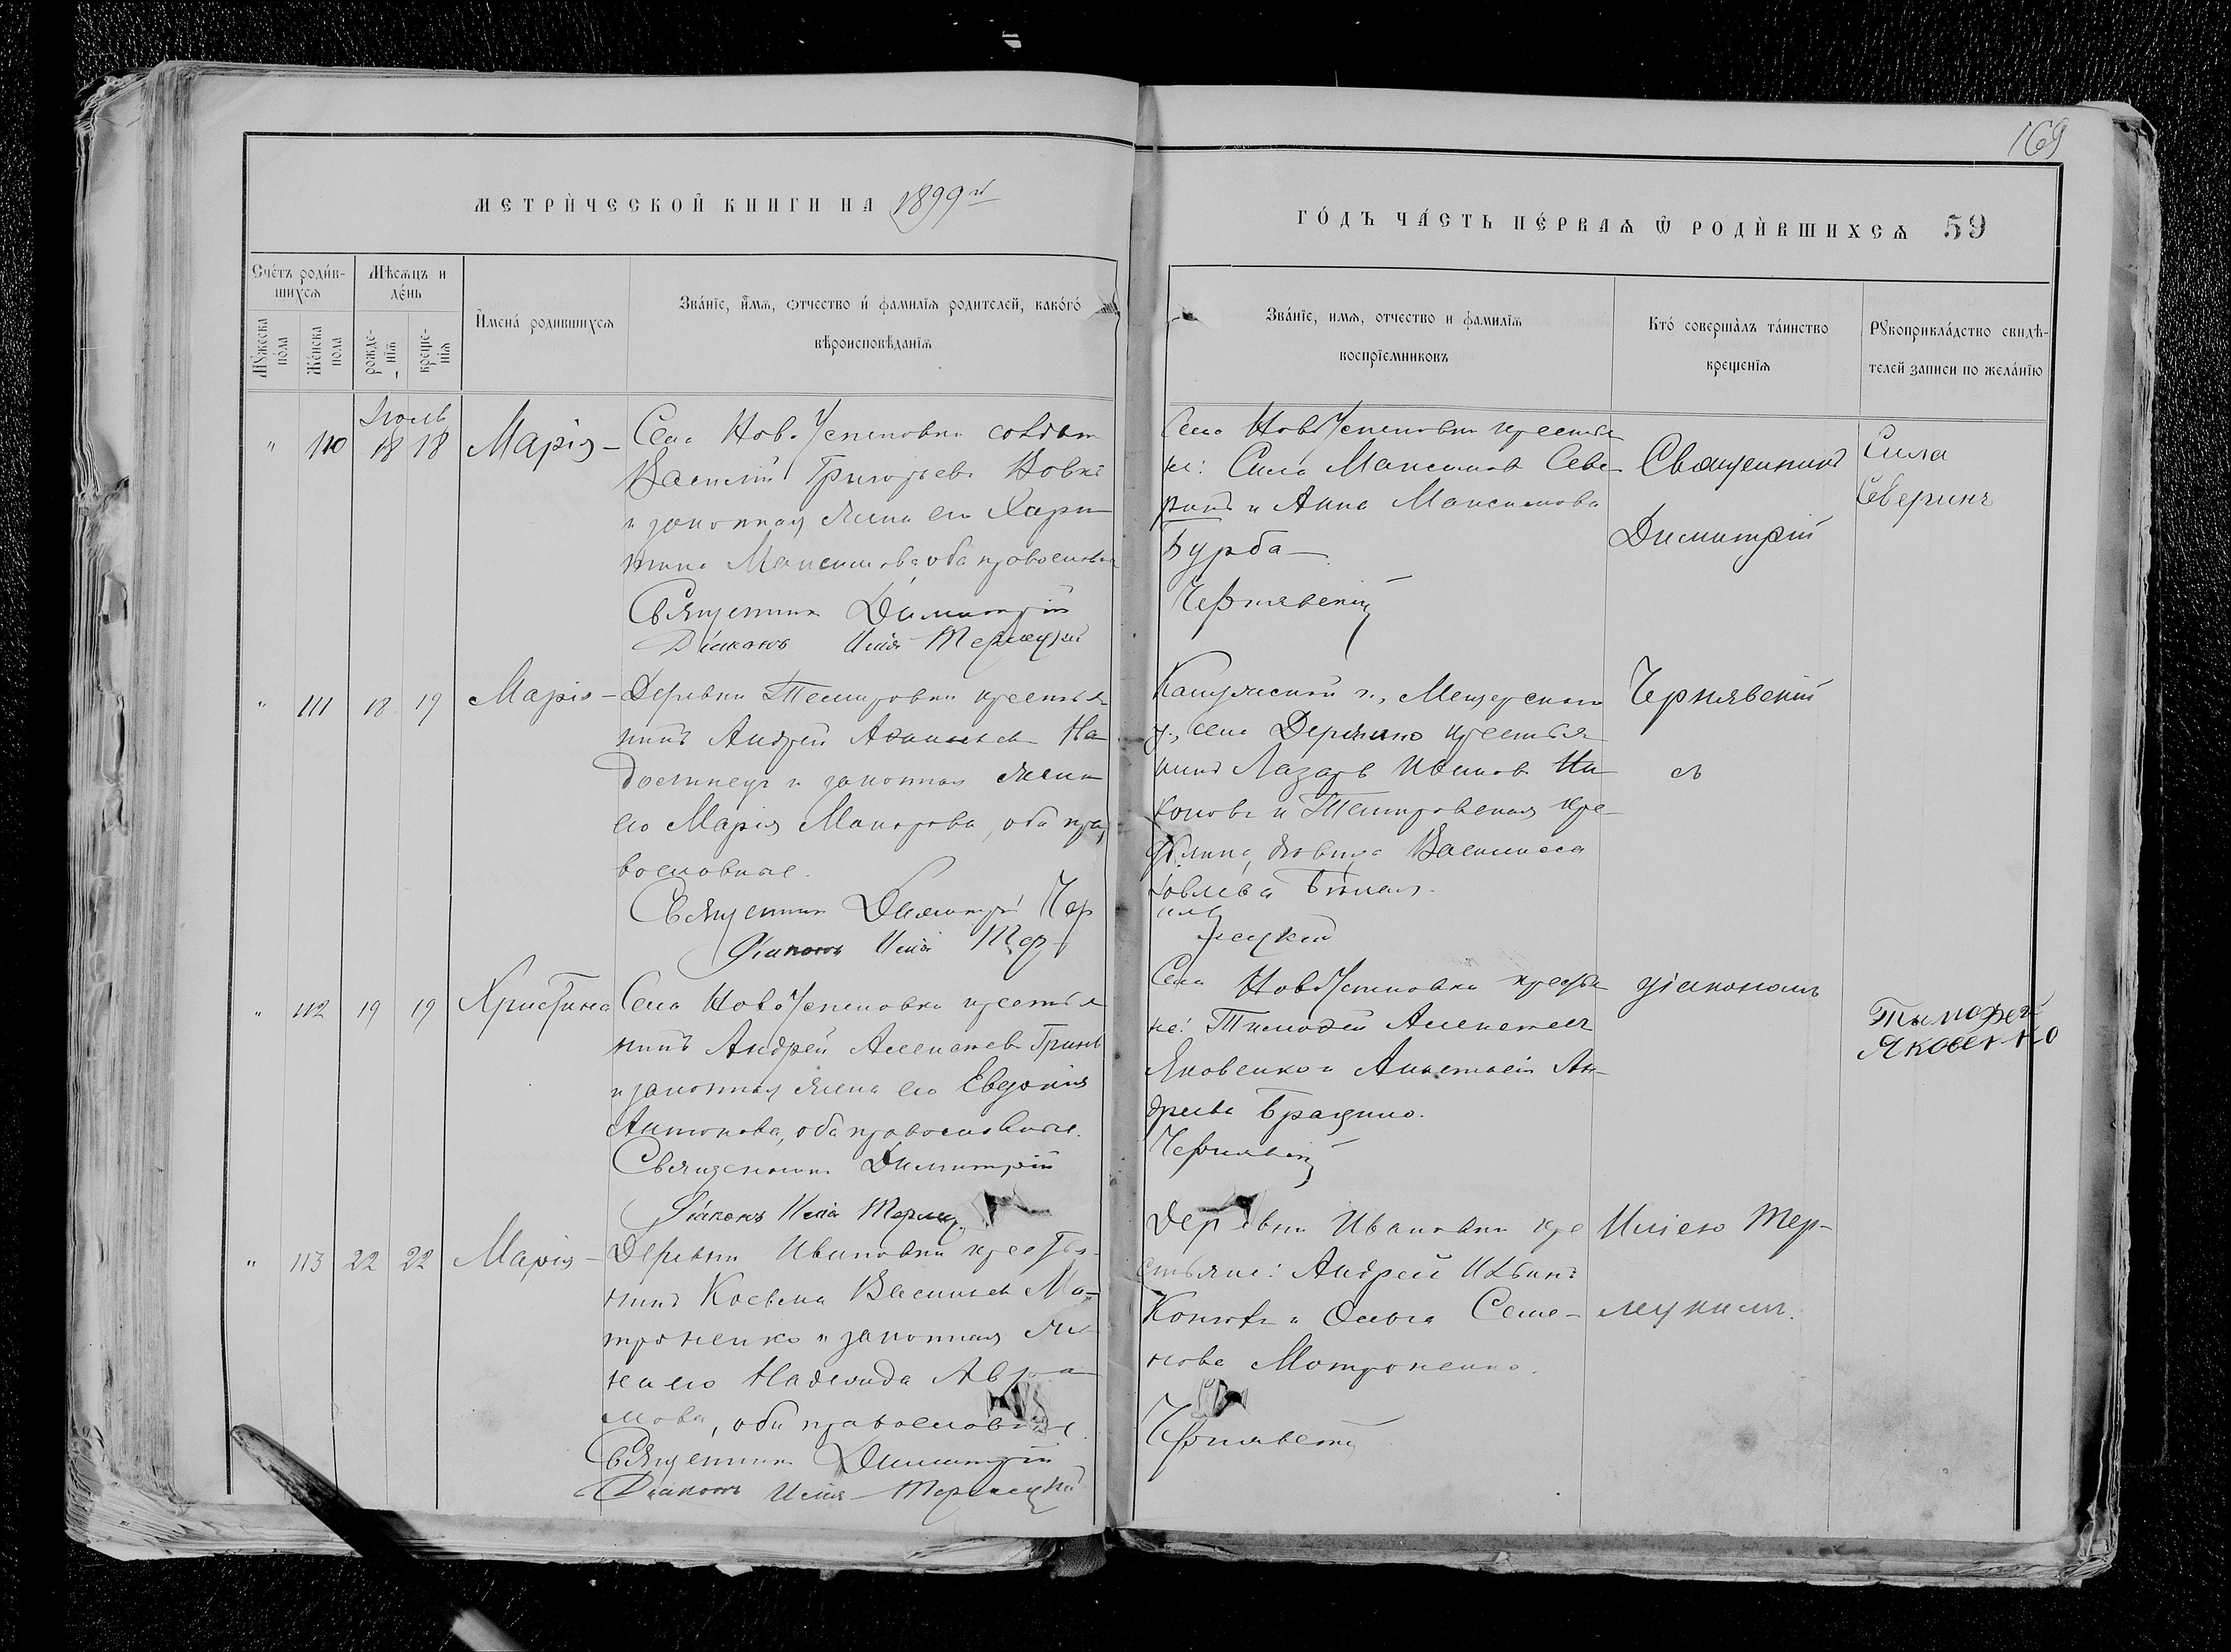 169
МЕТРИ́ЧЕСКОЙ КНИГИ НА 1899й
ГО́ДЪ ЧА́СТЬ ПЕ́РВАѦ Ѿ РОДИ́ВШИХСѦ 59
Сче́тъ роди́в-
шихсѧ
Мѣсѧцъ и
де́нь
Мꙋжеска
по́ла
Же́нска
пола
рожде-
нїѧ
креще-
нїѧ
Имена́ родившихсѧ
Зва́нїе, имѧ, ѻтчество и фамилїѧ родителей, како́гѡ
вѣроисповѣданїѧ
Зва́нїе, имѧ, отчество и фамилїѧ
воспрїемниковъ
Кто́ совершалъ та́инство
крещенїѧ
Рꙋкоприкла́дство свидѣ-
телей записи по жела́нїю
Іюль
" 110 18 18 Марія –
Села Ново Успеновки солдат
Василій Григорьевъ Вовкъ
и законная жена его Хари-
тина Максимова, оба православн
Священникъ Димитрій
Діаконъ Илія Терлецкій
Села Ново Успеновки крестья
не: Сила Максимовъ Севе-
ринъ и Анна Максимова
Бурба
Чернявскій
Священникъ
Димитрій
Сила
Северинъ
" 111 18 19 Марія –
Деревни Темировки крестья
нинъ Андрей На
и законная жена
его Марія Макарова, оба пра
вославные.
Священникъ Димитрій Чер
Діаконъ Илія Тер-
Калужской г., Мещовскаго
у., села крестья
нинъ Лазарь Ивановъ Ни
коновъ и Темировская кре
вдовица Василиса
Бѣлая.
лецкій
Чернявскій
съ
" 112 19 19 Христина
Села Ново Успеновки крестья
нинъ Андрей Алексеевъ Гринь
и законная жена его Евдокія
Антонова, оба православные.
Священникъ Димитрій
Діаконъ Илія Терлец
Села Ново Успеновки крестья
не: Тимофей Алексеевъ
Яковенко и Анастасія Ан-
дреева
Чернявскій
діакономъ
Тымофей
Яковенко
" 113 22 22 Марія –
Деревни Ивановки крестья-
нинъ Косьма Васильевъ Ма-
троненко и законная же
на его Надежда Авра
мова, оба православные.
Священникъ Димитрій
Діаконъ Илія Терлецкій
Деревни Ивановки кре
стьяне: Андрей
и Ольга Семе-
нова Матроненко.
Чернявскій
Иліею Тер-
лецкимъ.